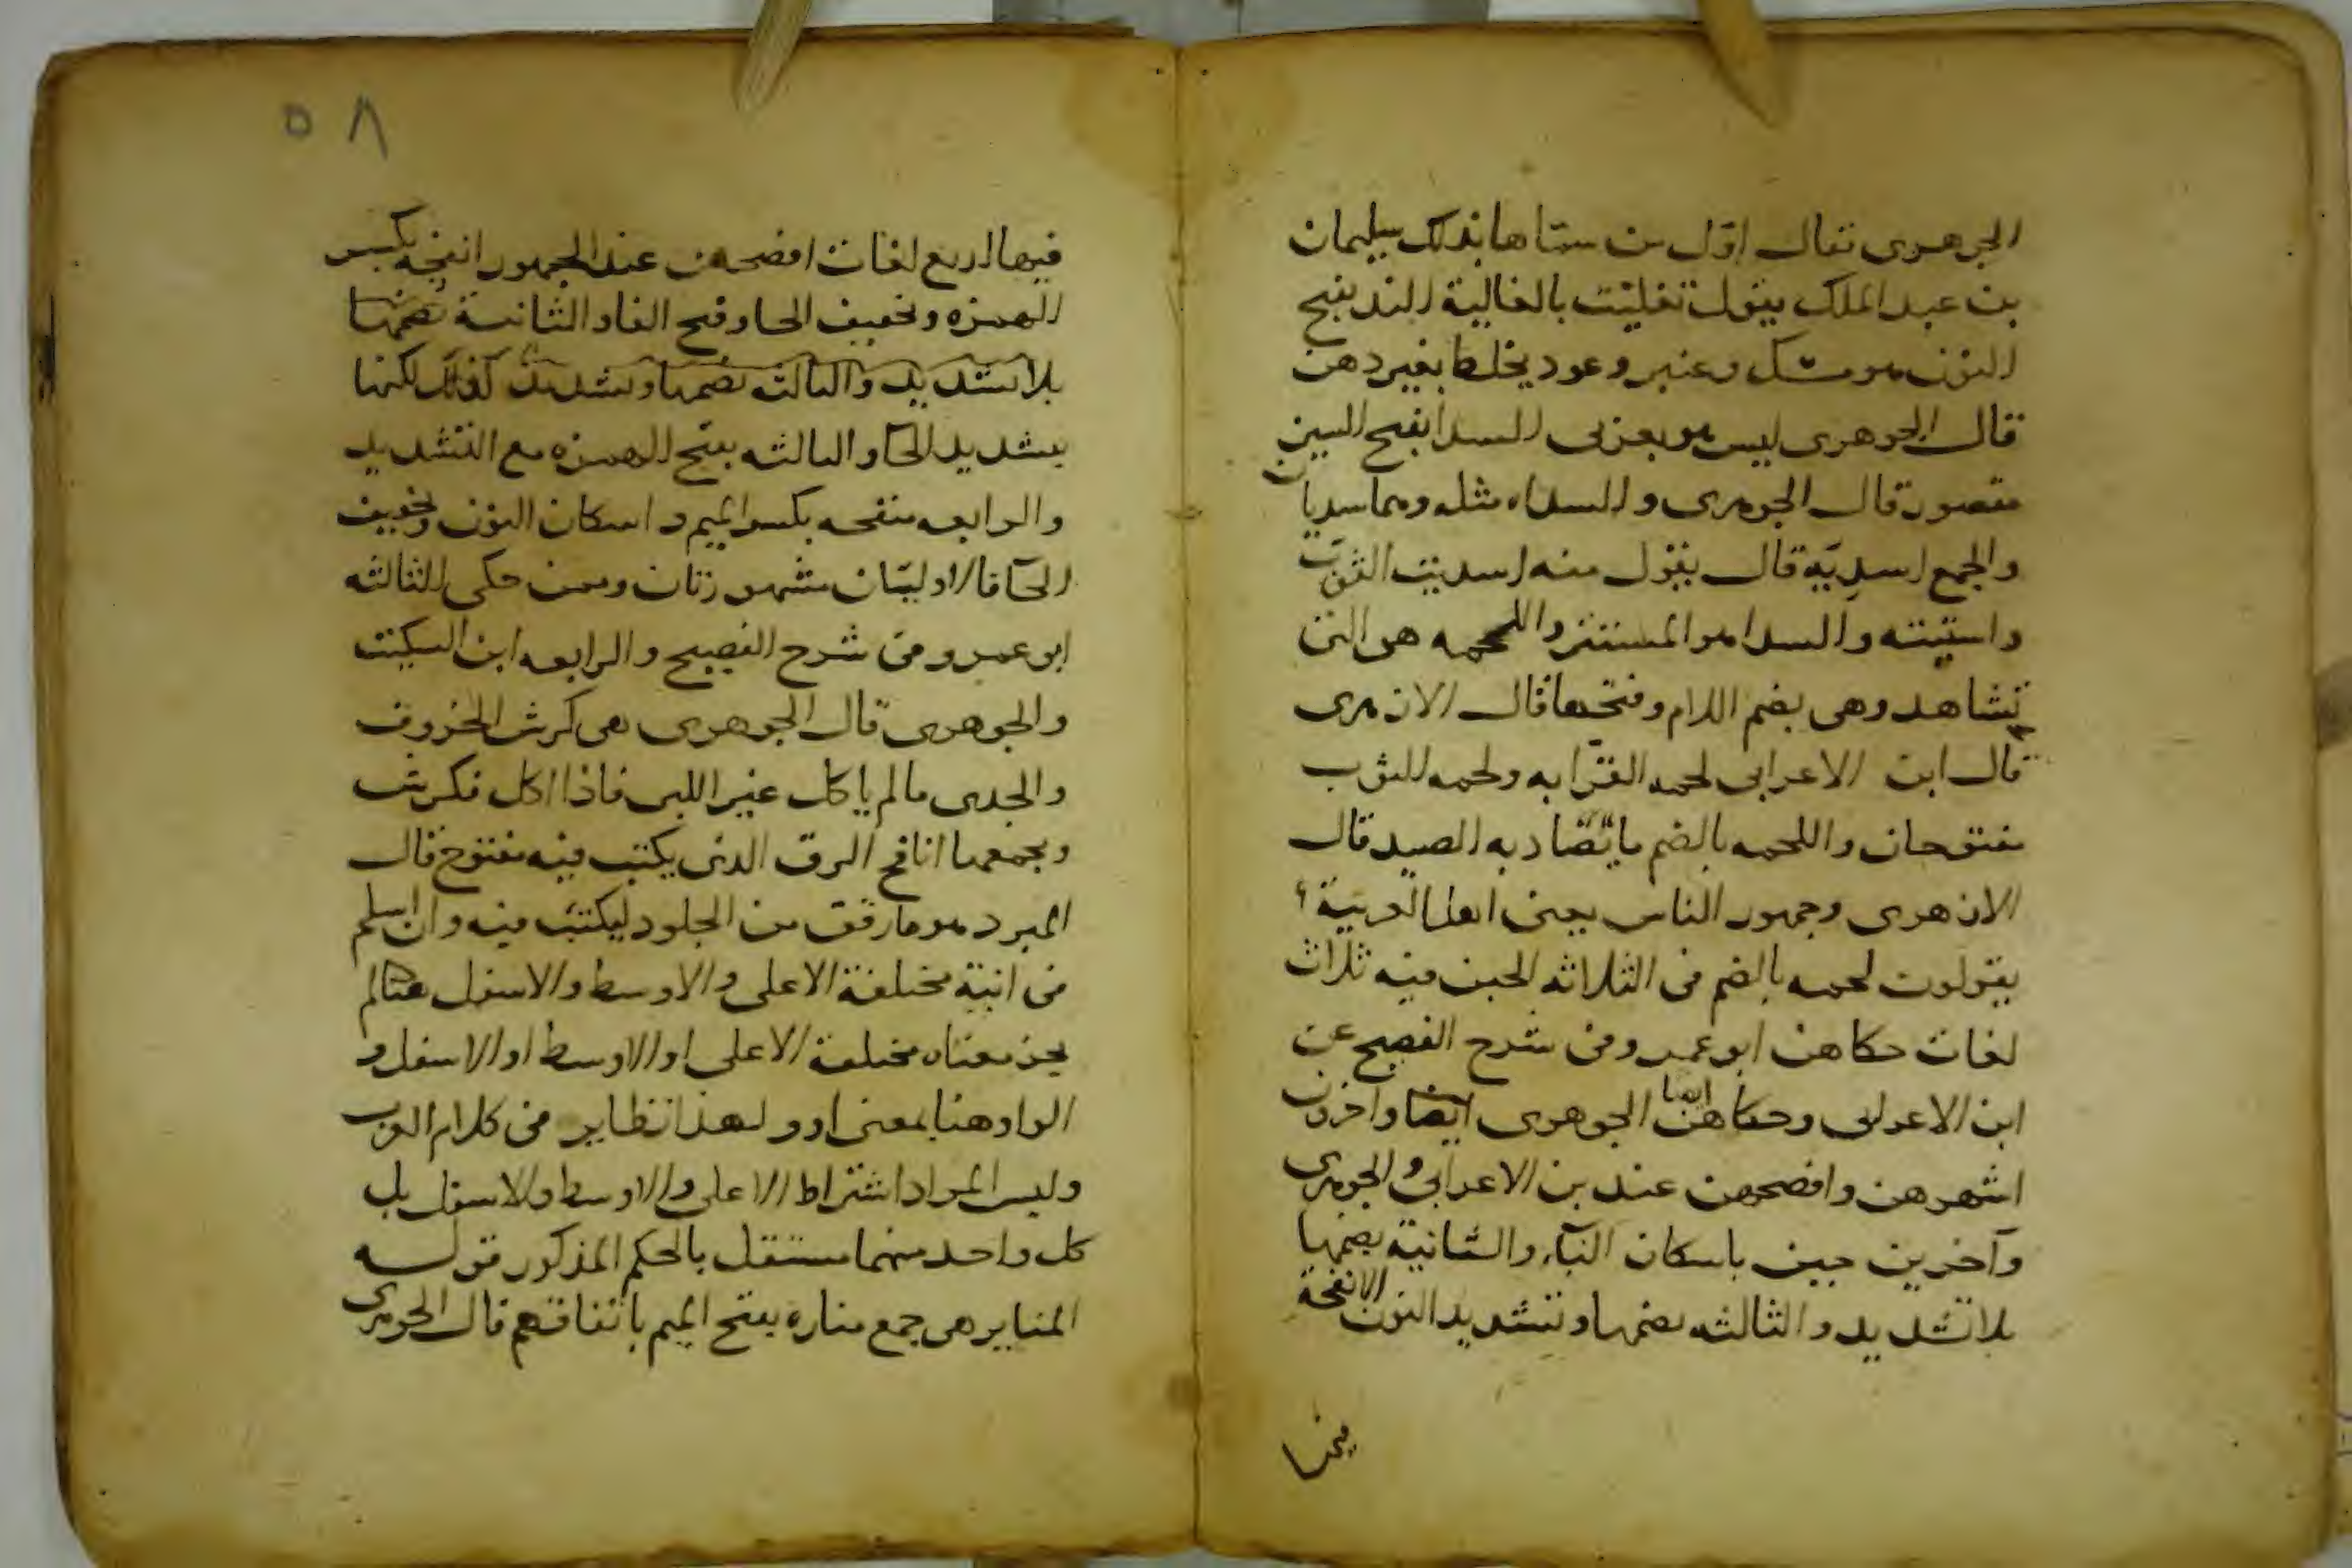 الجوهرى تقال اول من سماها بذلك سليمان
بن عبد الملك يقول تغليت بالغالية الند بفتح
النون هو مسك وعنبر وعود يخلط بغير دهن
قال الجوهرى ليس هو بعربى السدا بفتح السين
مقصور قال الجوهرى والسداه مثله وهما سديان
والجمع اسدية قال يقول منه اسديت الثوب
واستيته والسدا هو المستتر واللحمه هى التى
تشاهد وهى بضم اللام وفتحها قال الازهرى
قال ابن الاعرابى لحمه القرابه ولحمه الثوب
مفتوحان واللحمه بالضم ما يصاد به الصيد قال
الازهرى وجمهور الناس يعنى اهل العربية
يقولون لحمه بالضم فى الثلاثه الجبن فيه ثلاث
لغات حكاهن ابو عمر وفى شرح الفصيح عن
ابن الاعرابى وحكاهن ايضا الجوهرى ايضا واخرون
اشهرهن وافصحهن عند بن الاعرابى والجوهرى
وآخرين جبن باسكان البآء والثانية بضمها
بلا تشديد والثالثه بضمها وتشديد النون الانفحة
فيها
٥٨
فيها اربع لغات افصحهن عند الجمهور انفحه بكسر
الهمزه وتخفيف الحا وفتح الفا والثانية بضمها
بلا تشديد والثالثه بضمها وتشديد كذلك لكنها
بتشديد الحا والثالثه بفتح الهمزه مع التشديد
والرابعه منفحه بكسر الميم واسكان النون وتخفيف
الحآ فالاوليان مشهورتان وممن حكى الثالثه
ابو عمر وفى شرح الفصيح والرابعه ابن السكيت
والجوهرى قال الجوهرى هى كرش الخروف
والجدى ما لم ياكل غير اللبن فاذا اكل فكرش
وجمعها انافح الرق الذى يكتب فيه مفتوح قال
المبرد هو ما رقق من الجلود ليكتب فيه وان اسلم
فى انية مختلفة الاعلى والاوسط والاسفل
يجز معناه مختلفة الاعلى او الاوسط او الاسفل و
الواو هنا بمعنى او ولهذا نظاير فى كلام العرب
وليس المراد اشتراط الاعلى والاوسط والاسفل بل
كل واحد منهما مستقل بالحكم المذكور قوله
المناير هى جمع مناره بفتح الميم باتفاقهم قال الجوهرى